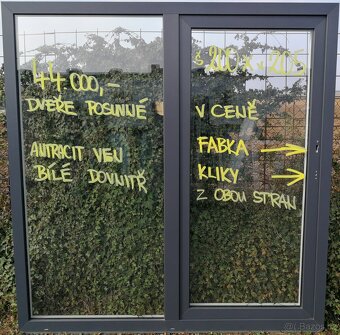 44 000,-
DVEŘE POSUVNÉ
ANTRACIT VEN
BÍLÉ DOVNITŘ
Š 205 X V 205
V CENĚ
FABKA
KLIKY
Z OBOU STRAN